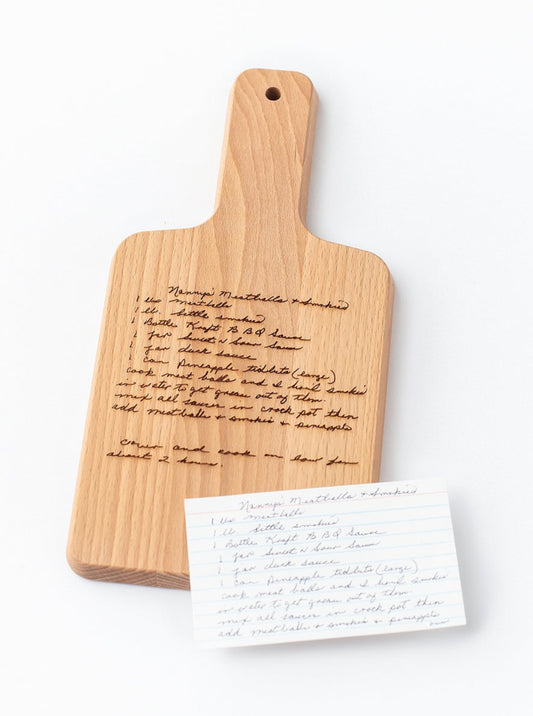 Nannys' Meatballs & Smokies
1 lbs meatballs
1 lb. little smokies
1 Bottle Kraft B B Q Sauce
1 jar Sweet n Sour Sauce
1 jar duck sauce
1 can Pineapple tidbits (large)
cook meat balls and I boil smokies
in water to get grease out of them.
mix all sauces in crock pot then
add meatballs & smokies & pineapple
cover and cook on low for
about 2 hours.
Nannys' Meatballs & Smokies
1 lbs meatballs
1 lb little smokies
1 Bottle Kraft B B Q Sauce
1 jar Sweet n Sour Sauce
1 jar duck sauce
1 can Pineapple tidbits (large)
cook meat balls and I boil smokies
in water to get grease out of them.
mix all sauces in crock pot then
add meatballs & smokies & pineapple
over